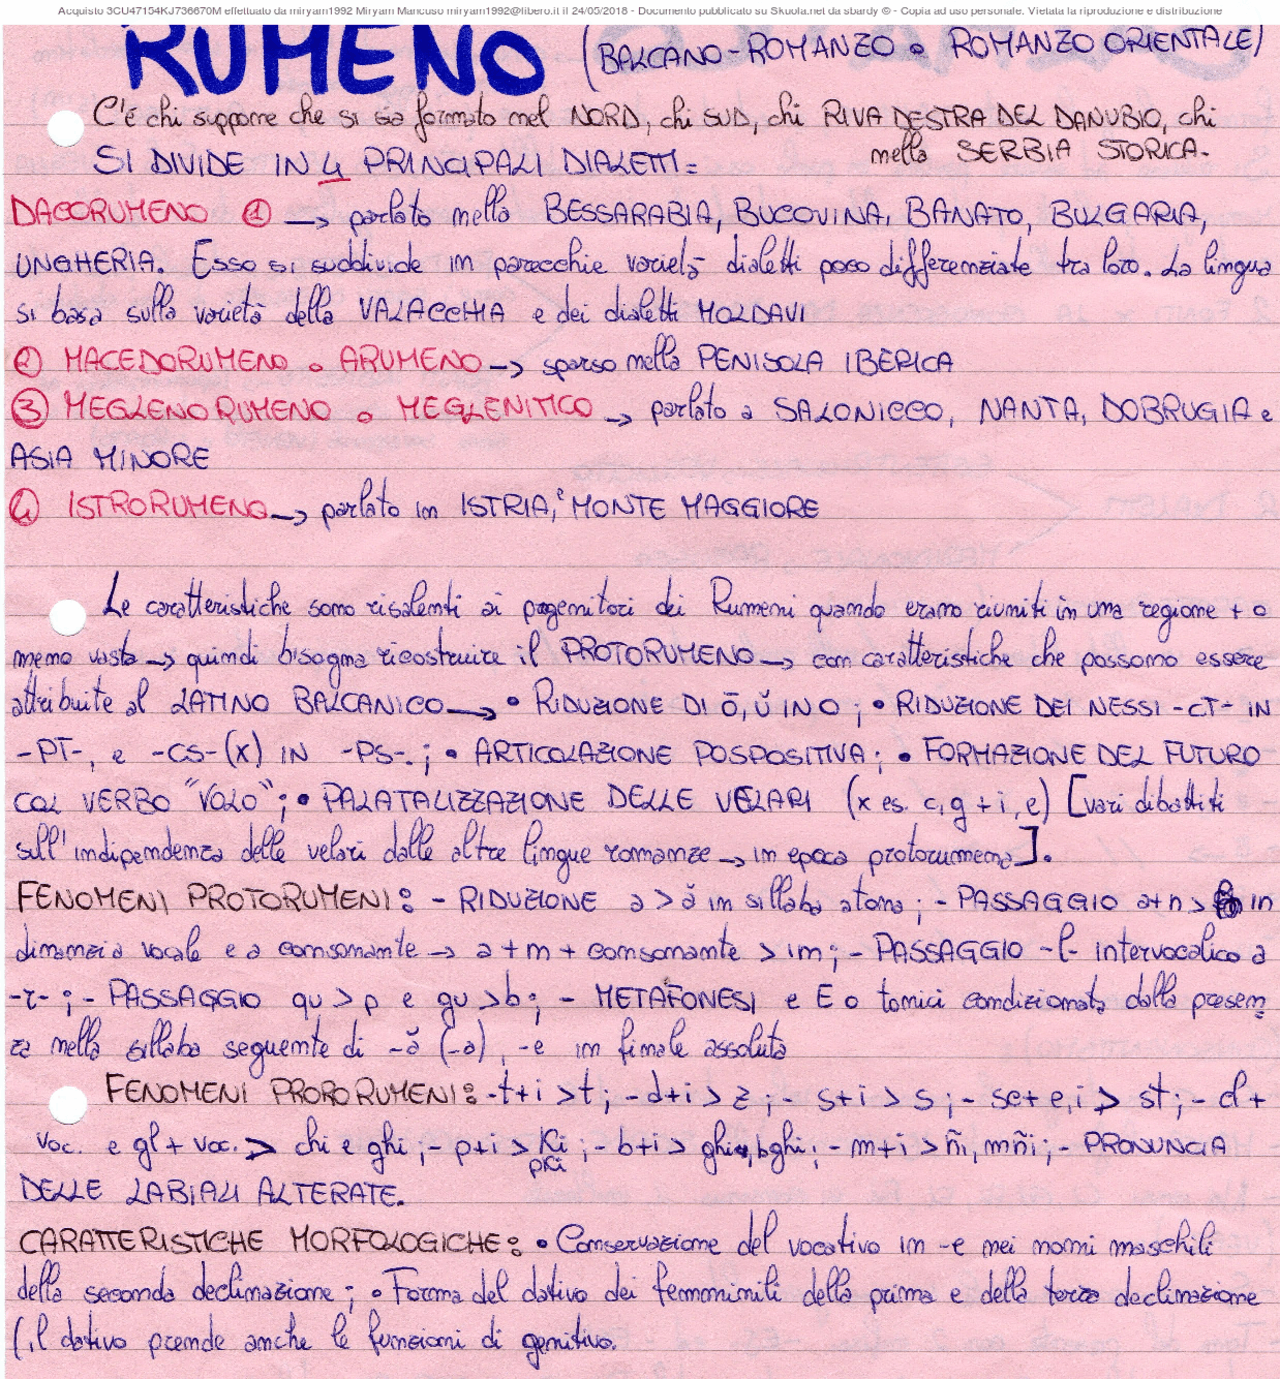 Acquisto 3CU47154KJ736670M effettuato da miryam1992 Miryam Mancuso miryam1992@libero.it il 24/05/2018 - Documento pubblicato su Skuola.net da sbardy © - Copia ad uso personale. Vietata la riproduzione e distribuzione
RUMENO (BALCANO-ROMANZO o ROMANZO ORIENTALE)
C'è chi suppone che si sia formato nel NORD, chi SUD, chi RIVA DESTRA DEL DANUBIO, chi
nella SERBIA STORICA.
SI DIVIDE IN 4 PRINCIPALI DIALETTI =
DACORUMENO ① → parlato nella BESSARABIA, BUCOVINA, BANATO, BULGARIA,
UNGHERIA. Esso si suddivide in parecchie varietà dialetti poco differenziate tra loro. La lingua
si basa sulla varietà della VALACCHIA e dei dialetti MOLDAVI
② MACEDORUMENO o ARUMENO → sparso nella PENISOLA IBERICA
③ MEGLENORUMENO o MEGLENITICO → parlato a SALONICCO, NANTA, DOBRUGIA e
ASIA MINORE
④ ISTRORUMENO → parlato in ISTRIA, MONTE MAGGIORE
Le caratteristiche sono risalenti ai progenitori dei Rumeni quando erano riuniti in una regione + o
meno vasta → quindi bisogna ricostruire il PROTORUMENO → con caratteristiche che possono essere
attribuite al LATINO BALCANICO → • RIDUZIONE DI ō, ŭ IN O ; • RIDUZIONE DEI NESSI -CT- IN
-PT-, e -CS- (x) IN -PS-. ; • ARTICOLAZIONE POSPOSITIVA ; • FORMAZIONE DEL FUTURO
COL VERBO "VOLO" ; • PALATALIZZAZIONE DELLE VELARI (x es. c, g + i, e) [vari dibattiti
sull'indipendenza delle velari dalle altre lingue romanze → in epoca protorumena].
FENOMENI PROTORUMENI : - RIDUZIONE a > ă in sillaba atona ; - PASSAGGIO a+n > in
dinanzi a vocale e a consonante → a + m + consonante > im ; - PASSAGGIO -l- intervocalico a
-r- ; - PASSAGGIO qu > p e gu > b ; - METAFONESI e E o tonici condizionata dalla presen
za nella sillaba seguente di -ă (-a), -e in finale assoluta
FENOMENI PRORORUMENI : -t+i > t ; -d+i > z ; - s+i > s ; - sc+e,i > st ; - cl +
voc. e gl + voc. > chi e ghi ; - p+i > Ki ; - b+i > ghi, bghi ; - m+i > ñi, mñi ; - PRONUNCIA
pKi
DELLE LABIALI ALTERATE.
CARATTERISTICHE MORFOLOGICHE : • Conservazione del vocativo in -e nei nomi maschili
della seconda declinazione ; • Forma del dativo dei femminili della prima e della terza declinazione
(il dativo prende anche le funzioni di genitivo.